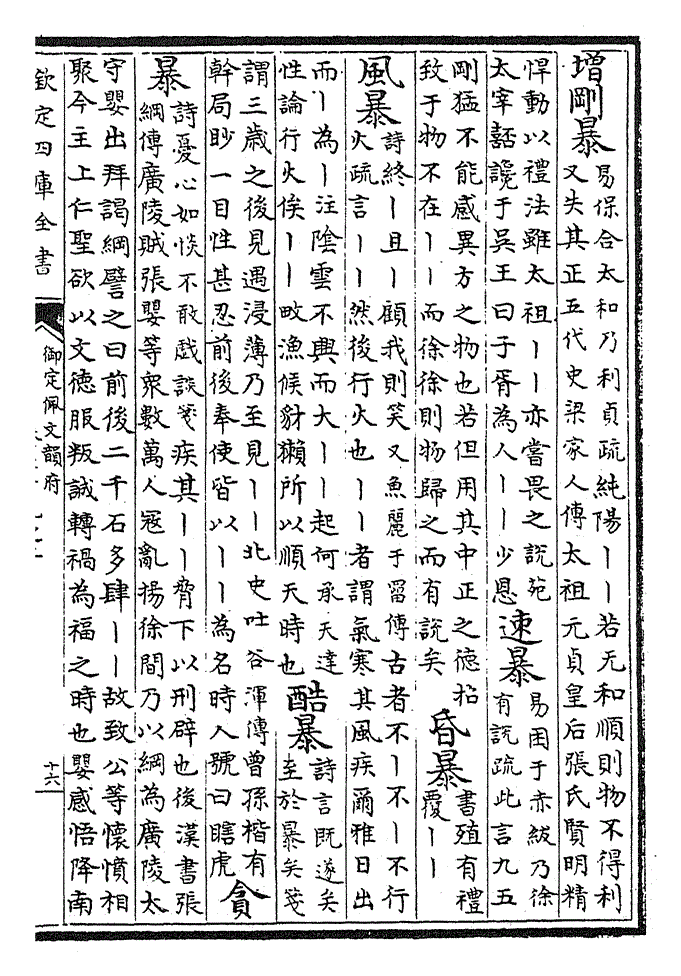 增剛暴
易保合太和乃利貞疏純陽丨丨若无和順則物不得利
又失其正五代史梁家人傳太祖元貞皇后張氏賢明精
悍動以禮法雖太祖丨丨亦嘗畏之說苑
太宰嚭讒于吳王曰子胥為人丨丨少恩
速暴
易困于赤紱乃徐
有說疏此言九五
剛猛不能感異方之物也若但用其中正之德招
致于物不在丨丨而徐徐則物歸之而有說矣
昏暴
書殖有禮
覆丨丨
風暴
詩終丨且丨顧我則笑又魚麗于罶傳古者不丨不丨不行
火疏言丨丨然後行火也丨丨者謂氣寒其風疾爾雅日出
而丨為丨注陰雲不興而大丨丨起何承天達
性論行火俟丨丨畋漁候豺獺所以順天時也
酷暴
詩言既遂矣
至於暴矣箋
謂三歲之後見遇浸薄乃至見丨丨北史吐谷渾傳曾孫楷有
幹局眇一目性甚忍前後奉使皆以丨丨為名時人號曰瞎虎
貪
暴
詩憂心如惔不敢戲談箋疾其丨丨脅下以刑辟也後漢書張
綱傳廣陵賊張嬰等衆數萬人寇亂揚徐間乃以綱為廣陵太
守嬰出拜謁綱譬之曰前後二千石多肆丨丨故致公等懷憤相
聚今主上仁聖欲以文德服叛誠轉禍為福之時也嬰感悟降南
欽定四庫全書
御定佩文韻府
十六